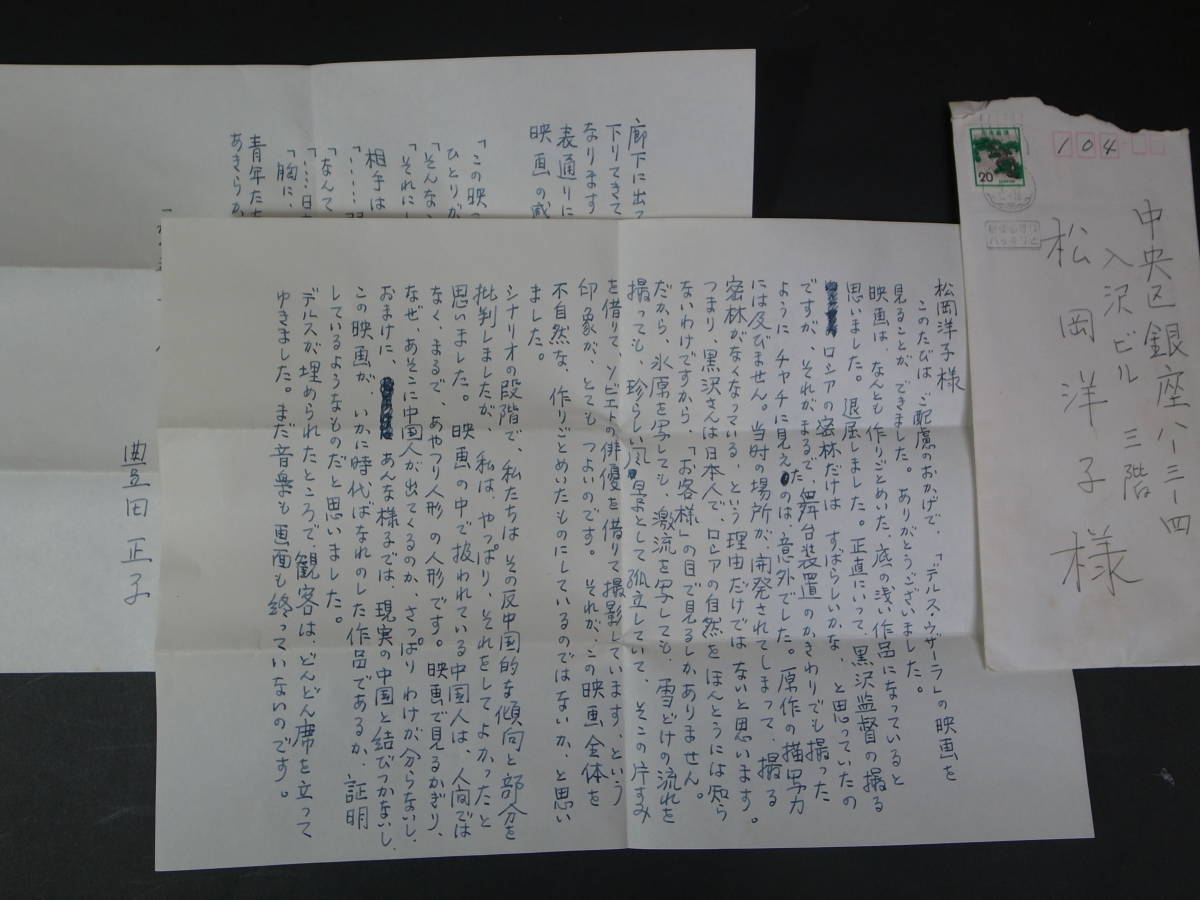 松岡洋子様
このたびは、ご配慮のおかげで、「デルス・ウザーラ」の映画を
見ることが、できました。ありがとうございました。
映画は、なんとも作りごとめいた、底の浅い作品になっていると
思いました。退屈しました。正直にいって、黒沢監督の撮る
ロシアの密林だけは、すばらしいかな、と思っていたの
ですが、それがまるで、舞台装置のかきわりでも撮った
ようにチャチに見えたのは、意外でした。原作の描写力
には及びません。当時の場所が、開発されてしまって、撮る
密林がなくなっている、という理由だけではないと思います。
つまり、黒沢さんは日本人で、ロシアの自然をほんとうには知ら
ないわけですから、「お客様」の目で見るしかありません。
だから、氷原を写しても、激流を写しても、雪どけの流れを
撮っても、珍らしい風景として孤立していて、そこの片すみ
を借りて、ソビエトの俳優を借りて撮影しています、という
印象が、とてもつよいのです。それが、この映画全体を
不自然な、作りごとめいたものにしているのではないか、と思い
ました。
シナリオの段階で、私たちは、その反中国的な傾向と部分を
批判しましたが、私は、やっぱり、それをしてよかったと
思いました。映画の中で扱われている中国人は、人間では
なく、まるで、あやつり人形の人形です。映画で見るかぎり、
なぜ、あそこに中国人が出てくるのか、さっぱりわけが分らないし、
おまけに、あんな様子では、現実の中国と結びつかないし、
この映画が、いかに時代ばなれのした作品であるか、証明
しているようなものだと思いました。
デルスが埋められたところで、観客は、どんどん席を立って
ゆきました。まだ音楽も画面も終っていないのです。
廊下に出て
下りてきて
なります
表通りに
映画の感
「この映
ひとりが
「そんな
「それにし
相手は
「なんて
「胸に、
青年たち
あきらか
豊田正子
104
20
中央区銀座八ー三ー四
入沢ビル 三階
松岡洋子様